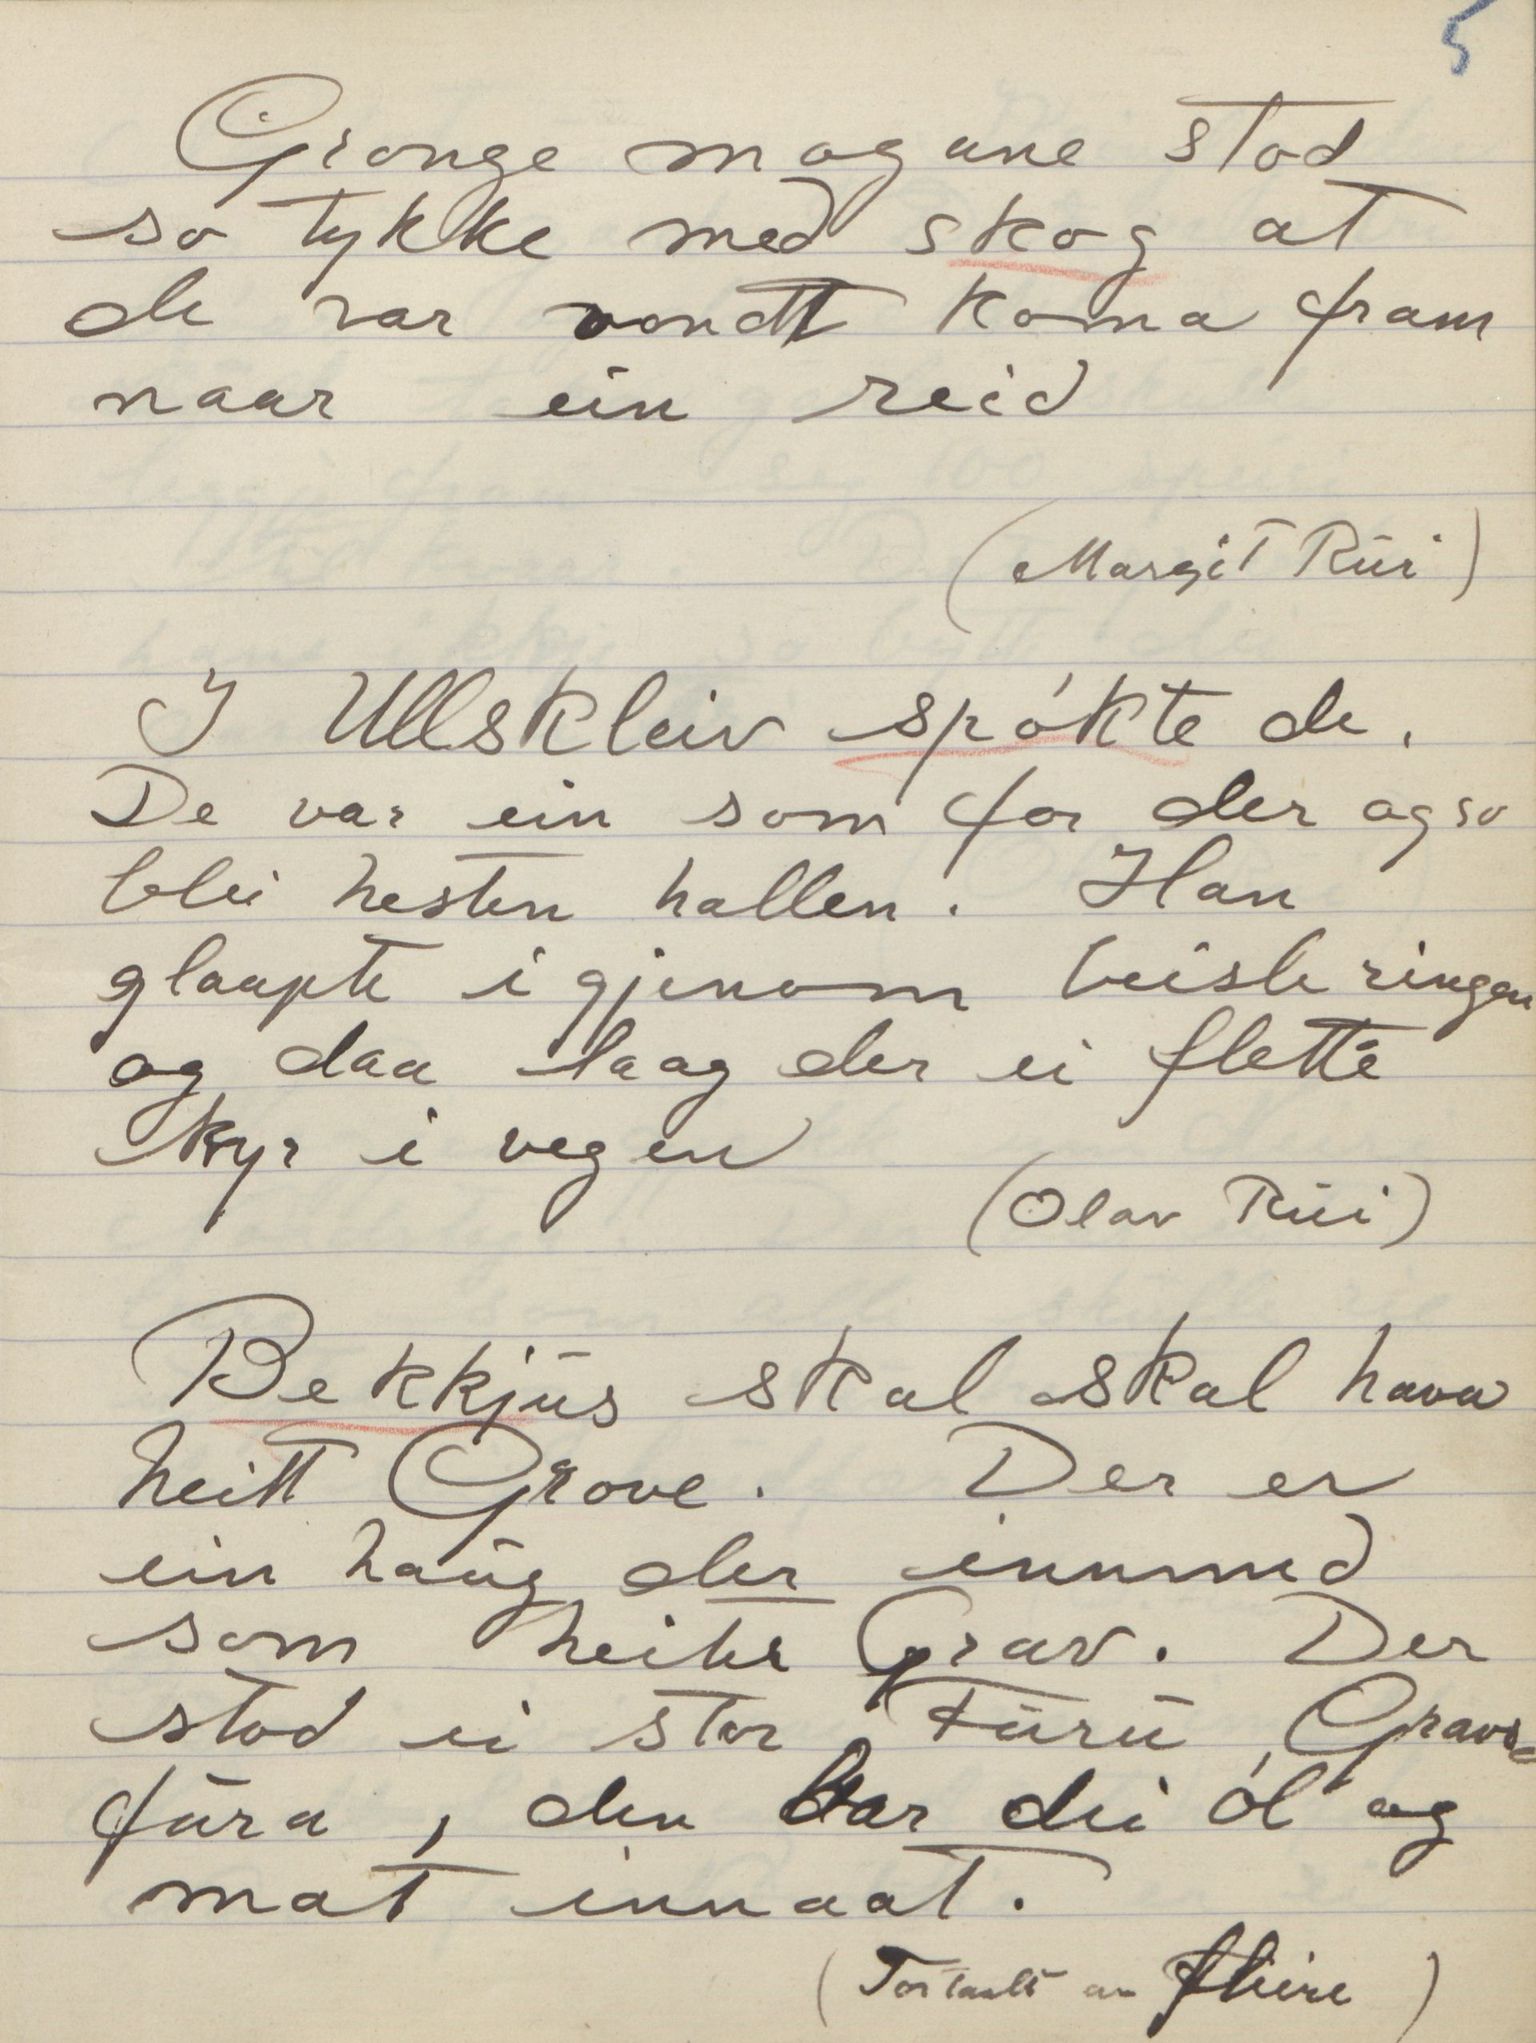 5
Grongemogane stod
so tykke med skog at
de var vondt koma fram
naar ein reid
(Margit Rui)
I Ullskleiv spókte de.
De var ein som for der og so
blei hesten hallen. Han
glaapte igjenom beisleringen
og daa laag der ei flette
kyr i vegen
(Olav Rui)
Bekkjus skal skal hava
heitt Grove. Der er
ein haug der innmed
som heiter Grav. Der
stod ei stor Furu Gravar
fura, den bar dei ól og
mat innaat.
(Fortalt av fleire)